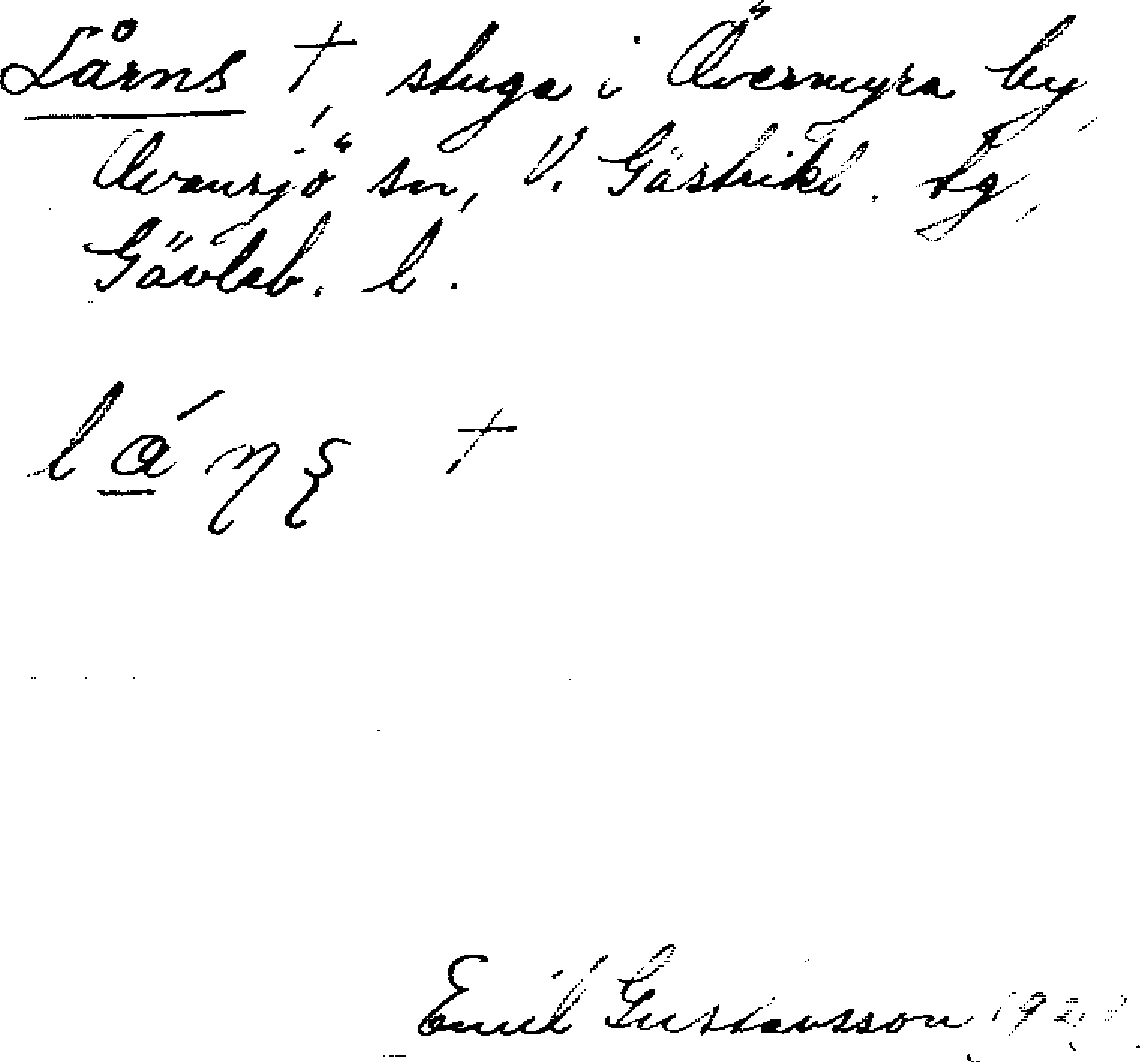 Lårns †, stuga i Övermyra by,
Ovansjö sn, V. Gästrikl. tg,
Gävleb. l.
lá̱ɳʂ †
Emil Gustavsson